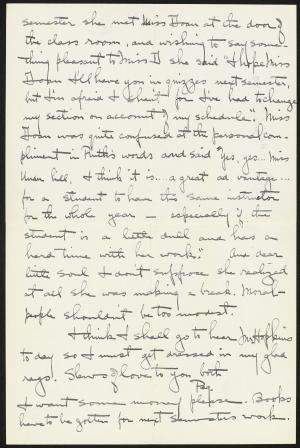 semester she met Miss Doan at the door of
the class room, and wishing to say some-
thing pleasant to Miss D she said "I hope Miss
Doan I'll have you in quizzes next semester,
but I'm afraid I shan't for I've had to change
my section on account of my schedule." Miss
Doan was quite confused at the personal com-
pliment in Ruth's words and said "Yes, yes... Miss
hill, I think it is... a great ad vantage...
for a student to have the same instructor
for the whole year — especially if the
student is a little dull and has a
hard time with her work." And dear
little soul I don't suppose she realized
at all she was making a break. Moral-
people shouldn't be too modest.
I think I shall go to hear Dr Hopkins
to day so I must get dressed in my glad
rags. Slews of love to you both
I want some money please. Books
have to be gotten for next semester's work.